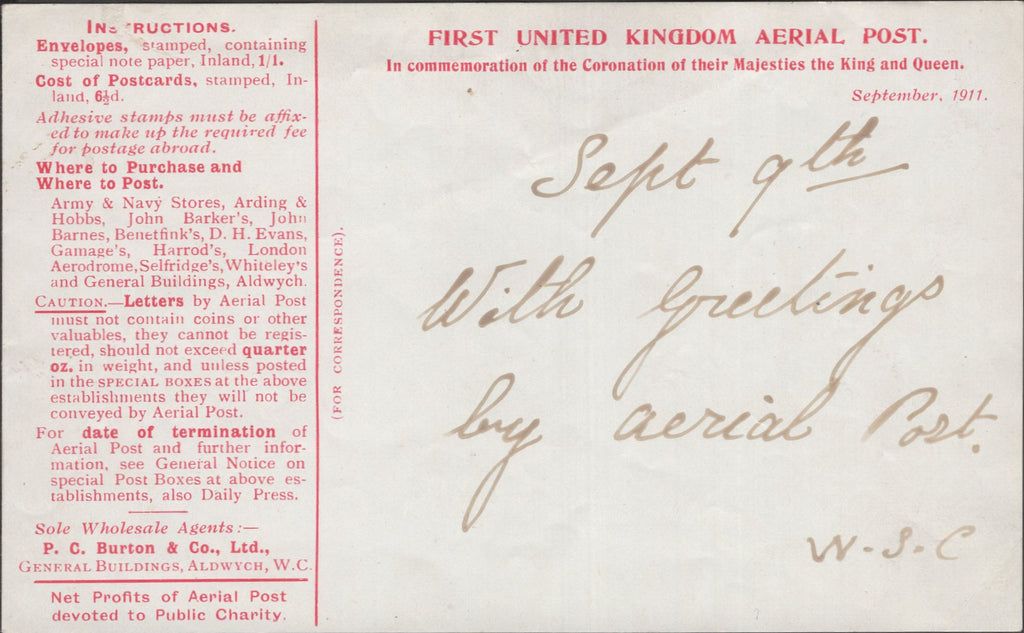 INSTRUCTIONS.
Envelopes, stamped, containing
special note paper, Inland, 1/1.
Cost of Postcards, stamped, In-
land, 6½d.
Adhesive stamps must be affix-
ed to make up the required fee
for postage abroad.
Where to Purchase and
Where to Post.
Army & Navy Stores, Arding &
Hobbs, John Barker's, John
Barnes, Benetfink's, D. H. Evans,
Gamage's, Harrod's, London
Aerodrome, Selfridge's, Whiteley's
and General Buildings, Aldwych.
CAUTION.—Letters by Aerial Post
must not contain coins or other
valuables, they cannot be regis-
tered, should not exceed quarter
oz. in weight, and unless posted
in the SPECIAL BOXES at the above
establishments they will not be
conveyed by Aerial Post.
For date of termination of
Aerial Post and further infor-
mation, see General Notice on
special Post Boxes at above es-
tablishments, also Daily Press.
Sole Wholesale Agents:—
P. C. Burton & Co., Ltd.,
GENERAL BUILDINGS, ALDWYCH, W.C.
Net Profits of Aerial Post
devoted to Public Charity.
(FOR CORRESPONDENCE).
FIRST UNITED KINGDOM AERIAL POST.
In commemoration of the Coronation of their Majesties the King and Queen.
September, 1911.
Sept 9th
With Greetings
by aerial Post.
W. S. C